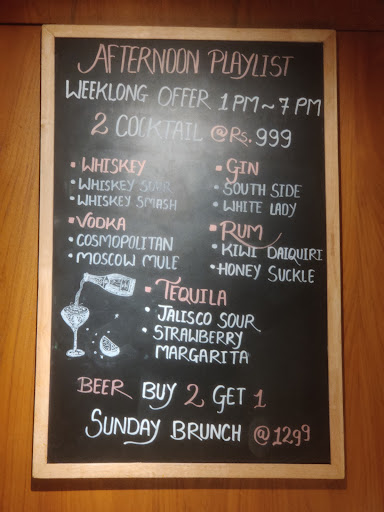 AFTERNOON PLAYLIST
WEEKLONG OFFER 1 PM ~ 7 PM
2 COCKTAIL @ Rs. 999
• WHISKEY
• WHISKEY SOUR
• WHISKEY SMASH
• VODKA
• COSMOPOLITAN
• MOSCOW MULE
• GIN
• SOUTH SIDE
• WHITE LADY
• RUM
• KIWI DAIQUIRI
• HONEY SUCKLE
• TEQUILA
• JALISCO SOUR
• STRAWBERRY
MARGARITA
BEER BUY 2 GET 1
SUNDAY BRUNCH @ 1299